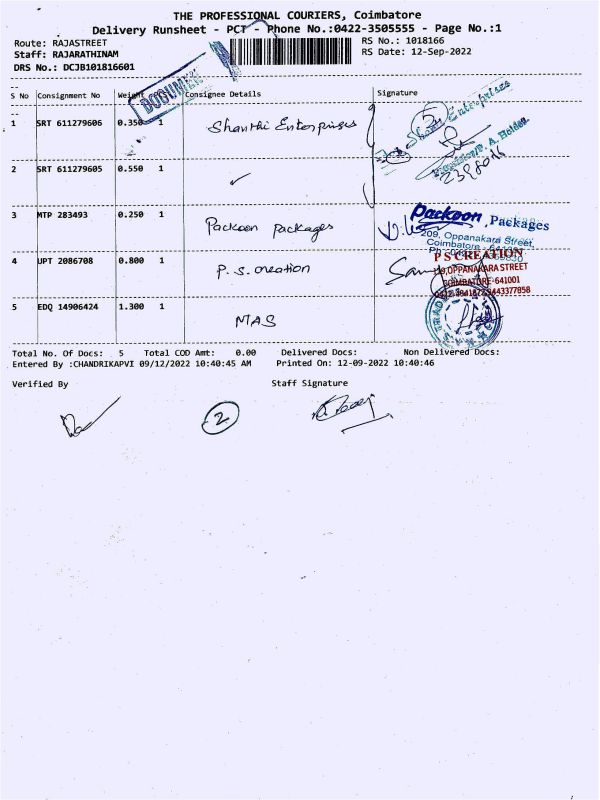 THE PROFESSIONAL COURIERS, Coimbatore
Delivery Runsheet - PCT - Phone No.:0422-3505555 - Page No.:1
Route: RAJASTREET RS No.: 1018166
Staff: RAJARATHINAM RS Date: 12-Sep-2022
DRS No.: DCJB101816601
S No Consignment No Weight Consignee Details Signature
1 SRT 611279606 0.350 1 Shanthi Enterprises
2 SRT 611279605 0.550 1 ✓
3 MTP 283493 0.250 1 Packoon Packages Packoon Packages
209, Oppanakara Street,
Coimbatore - 641001
4 UPT 2086708 0.800 1 P.S. creation P S CREATION
OPPANAKARA STREET
COIMBATORE-641001
5 EDQ 14906424 1.300 1 MAS
Total No. Of Docs: 5 Total COD Amt: 0.00 Delivered Docs: Non Delivered Docs:
Entered By :CHANDRIKAPVI 09/12/2022 10:40:45 AM Printed On: 12-09-2022 10:40:46
Verified By Staff Signature
2